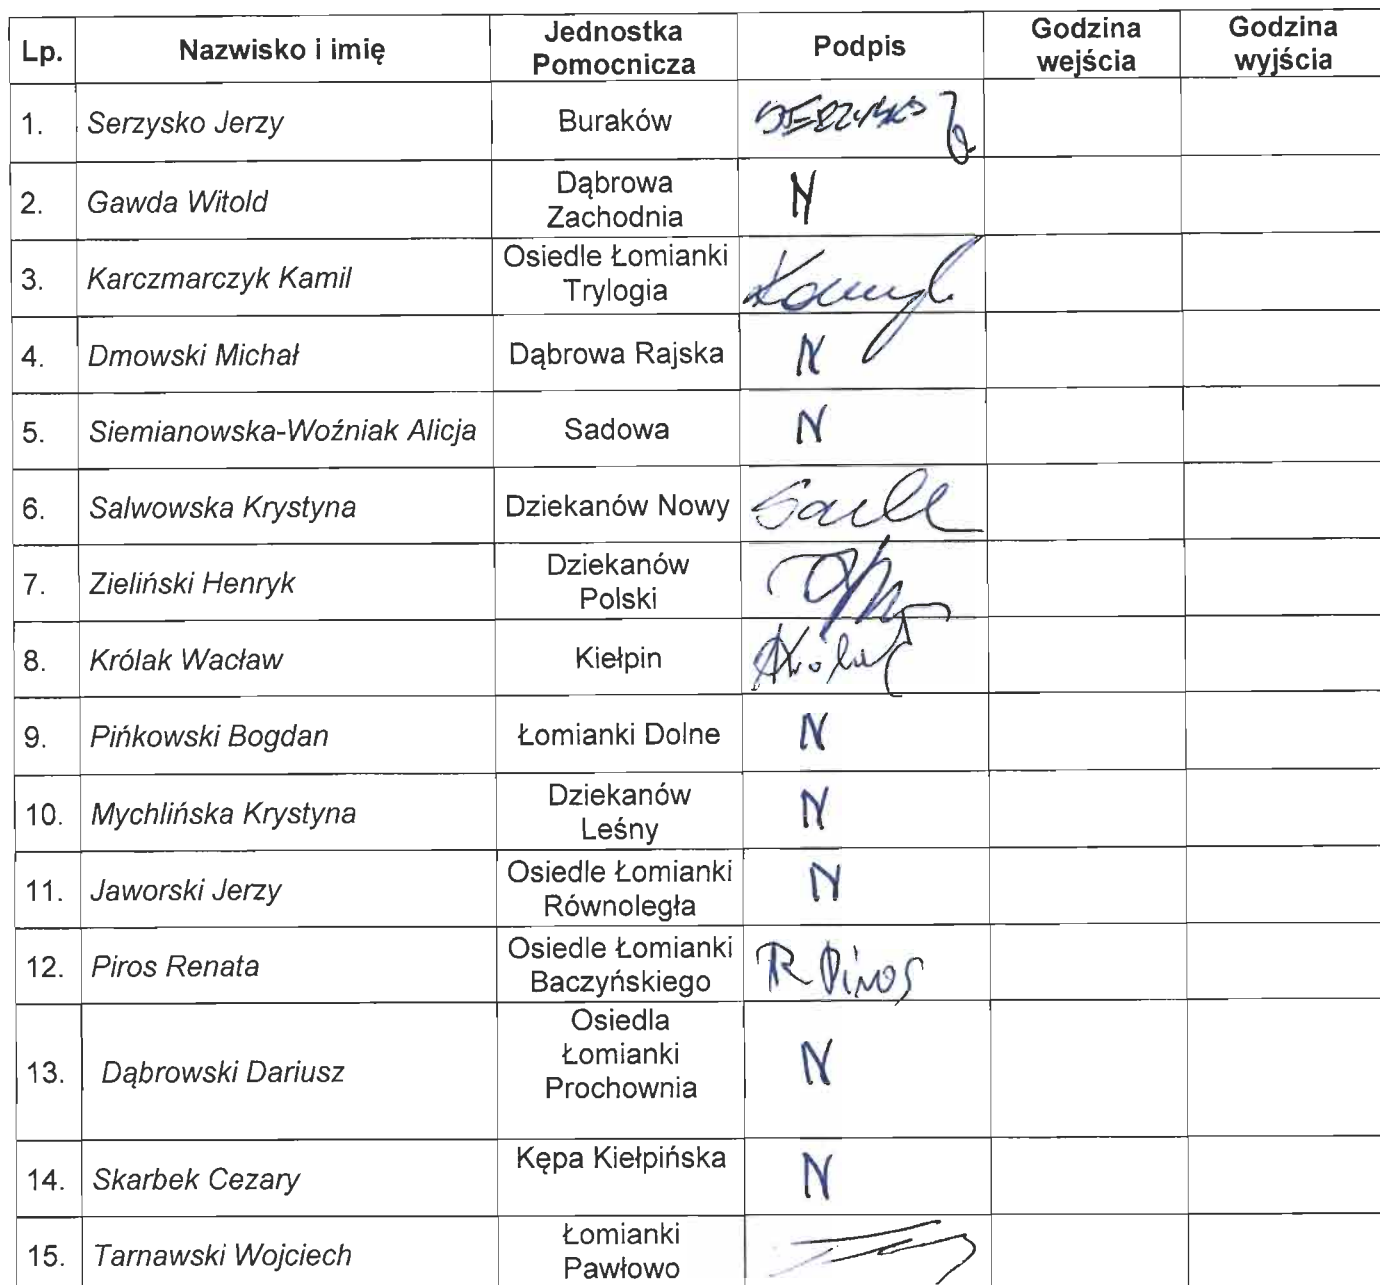 Lp. Nazwisko i imię Jednostka Pomocnicza Podpis Godzina wejścia Godzina wyjścia
1. Serzysko Jerzy Buraków SERZYSKO J
2. Gawda Witold Dąbrowa Zachodnia N
3. Karczmarczyk Kamil Osiedle Łomianki Trylogia
4. Dmowski Michał Dąbrowa Rajska N
5. Siemianowska-Woźniak Alicja Sadowa N
6. Salwowska Krystyna Dziekanów Nowy
7. Zieliński Henryk Dziekanów Polski
8. Królak Wacław Kiełpin
9. Pińkowski Bogdan Łomianki Dolne N
10. Mychlińska Krystyna Dziekanów Leśny N
11. Jaworski Jerzy Osiedle Łomianki Równoległa N
12. Piros Renata Osiedle Łomianki Baczyńskiego R Piros
13. Dąbrowski Dariusz Osiedla Łomianki Prochownia N
14. Skarbek Cezary Kępa Kiełpińska N
15. Tarnawski Wojciech Łomianki Pawłowo